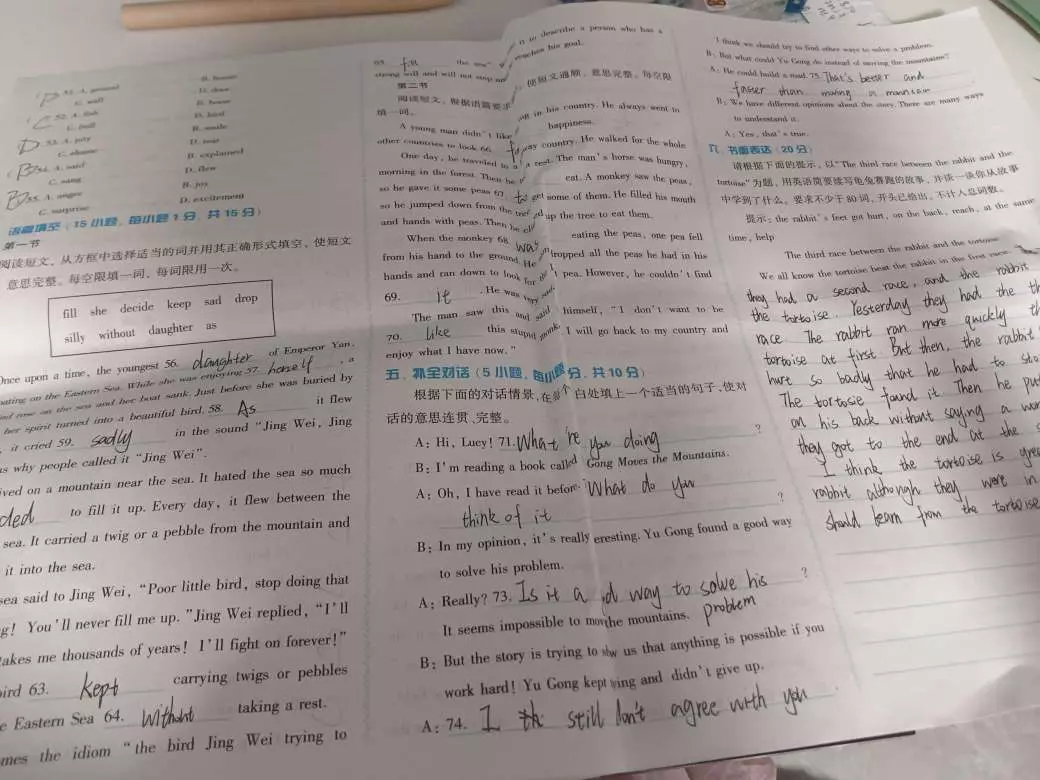 52. A. ground
B. house
C. wall
D. door
C 52. A. fish
B. horse
C. bull
D. bird
D 53. A. joy
B. smile
C. shame
D. tear
B 54. A. said
B. explained
C. sang
D. flew
B 55. A. anger
B. joy
C. surprise
D. excitement
语篇填空（15 小题，每小题 1 分，共 15 分）
第一节
阅读短文，从方框中选择适当的词并用其正确形式填空，使短文
意思完整。每空限填一词，每词限用一次。
fill she decide keep sad drop
silly without daughter as
Once upon a time, the youngest 56. daughter of Emperor Yan,
boating on the Eastern Sea. While she was enjoying 57. herself, a
rose on the sea and her boat sank. Just before she was buried by
her spirit turned into a beautiful bird. 58. As it flew
, it cried 59. sadly in the sound “Jing Wei, Jing
why people called it “Jing Wei”.
lived on a mountain near the sea. It hated the sea so much
ded to fill it up. Every day, it flew between the
sea. It carried a twig or a pebble from the mountain and
it into the sea.
sea said to Jing Wei, “Poor little bird, stop doing that
! You'll never fill me up.” Jing Wei replied, “I'll
takes me thousands of years! I'll fight on forever!”
bird 63. kept carrying twigs or pebbles
Eastern Sea 64. Without taking a rest.
comes the idiom “the bird Jing Wei trying to
65. fill the sea”
it to describe a person who has a
strong will and will not stop
reaches his goal.
第二节
阅读短文，根据语篇要求
使短文通顺、意思完整。每空限
填一词。
A young man didn't like
in his country. He always went to
other countries to look 66.
happiness.
One day, he traveled to a
country. He walked for the whole
morning in the forest. Then he
a rest. The man's horse was hungry,
so he gave it some peas 67. to eat. A monkey saw the peas,
so he jumped down from the tree
get some of them. He filled his mouth
and hands with peas. Then he
up the tree to eat them.
When the monkey 68. was eating the peas, one pea fell
from his hand to the ground. He dropped all the peas he had in his
hands and ran to look for
pea. However, he couldn't find
69. it. He was very
The man saw this and said himself, “I don't want to be
70. like this stupid
I will go back to my country and
enjoy what I have now.”
五、补全对话（5 小题，每小题 分，共 10 分）
根据下面的对话情景，在 白处填上一个适当的句子，使对
话的意思连贯、完整。
A: Hi, Lucy! 71. What're you doing ?
B: I'm reading a book called Gong Moves the Mountains.
A: Oh, I have read it before. What do you
think of it ?
B: In my opinion, it's really eresting. Yu Gong found a good way
to solve his problem.
A: Really? 73. Is it a way to solve his ?
problem
It seems impossible to move the mountains.
B: But the story is trying to show us that anything is possible if you
work hard! Yu Gong kept and didn't give up.
A: 74. I still don't agree with you
I think we should try to find other ways to solve a problem.
B: But what could Yu Gong do instead of moving the mountains?
A: He could build a road. 75. That's better and
faster than moving a
B: We have different opinions about the story. There are many ways
to understand it.
A: Yes, that's true.
六、书面表达（20 分）
请根据下面的提示，以“The third race between the rabbit and the
tortoise”为题，用英语简要续写龟兔赛跑的故事，并谈一谈你从故事
中学到了什么。要求不少于 80 词，开头已给出，不计入总词数。
提示：the rabbit's feet got hurt, on the back, reach, at the same
time, help
The third race between the rabbit and the tortoise
We all know the tortoise beat the rabbit in the first race
they had a second race, and the rabbit
the tortoise. Yesterday they had the
race. The rabbit ran more quickly
tortoise at first. But then, the rabbit
hurt so badly that he had to
The tortoise found it. Then he
on his back without saying a
they got to the end at the
I think the tortoise is
rabbit although they were in
should learn from the tortoise